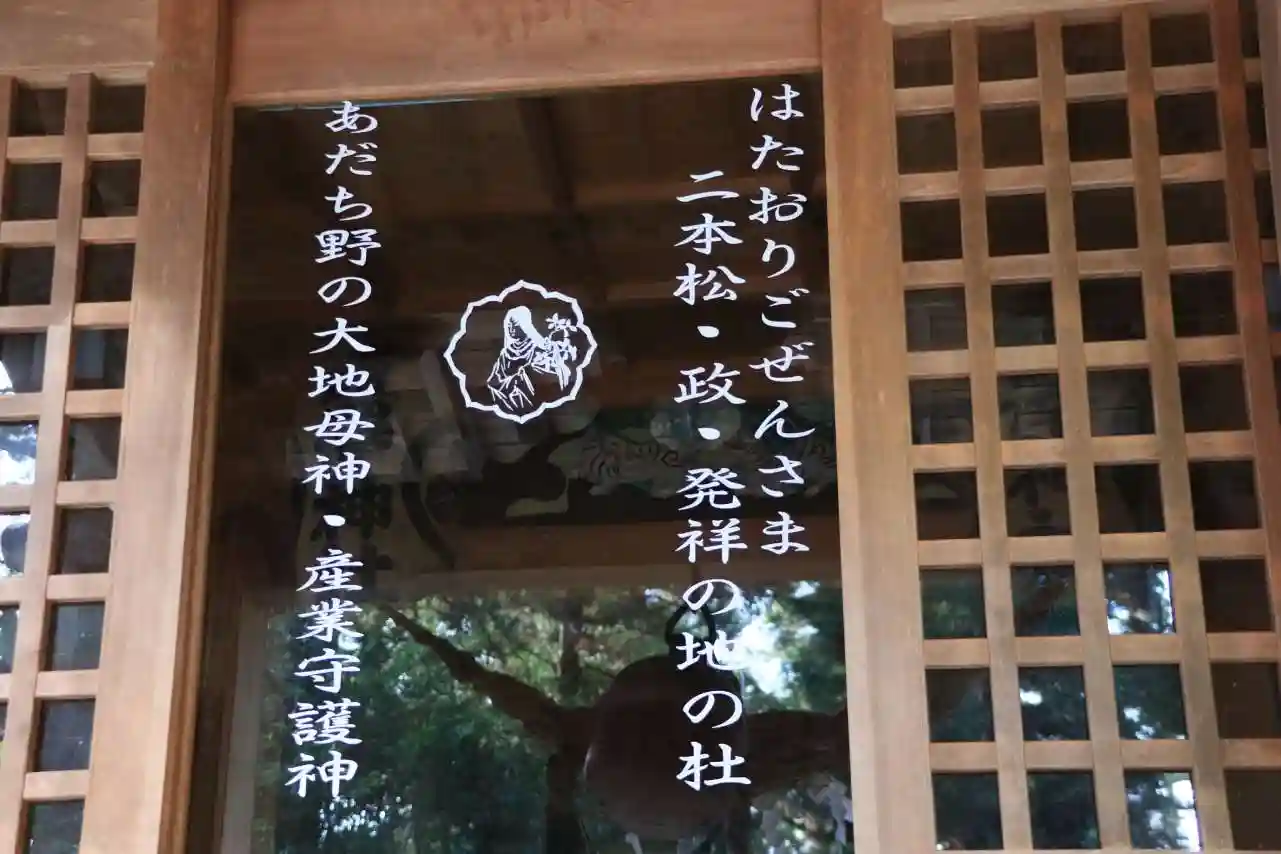 はたおりごぜんさま
二本松・政・発祥の地の杜
あだち野の大地母神・産業守護神